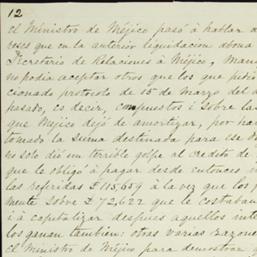 12
el Ministro de Méjico pasó á hablar a
veces que en la anterior liquidacion abona
Secretario de Relaciones á Méjico, man
no podia aceptar otros que los que pidió
cionado protocolo de 15 de Marzo del a
pasado, es decir, compuestos i sobre la
que Méjico dejó de amortizar, por ha
tomado la suma destinada para ese
no solo dió un terrible golpe al credito de
que le obligó á pagar desde entonces
las referidas £115,659 á la vez que los
mente sobre £72,622 que le costaban
i á capitalizar despues aquellos inte
los ganan tambien: otras varias razone
el Ministro de Méjico para demostrar